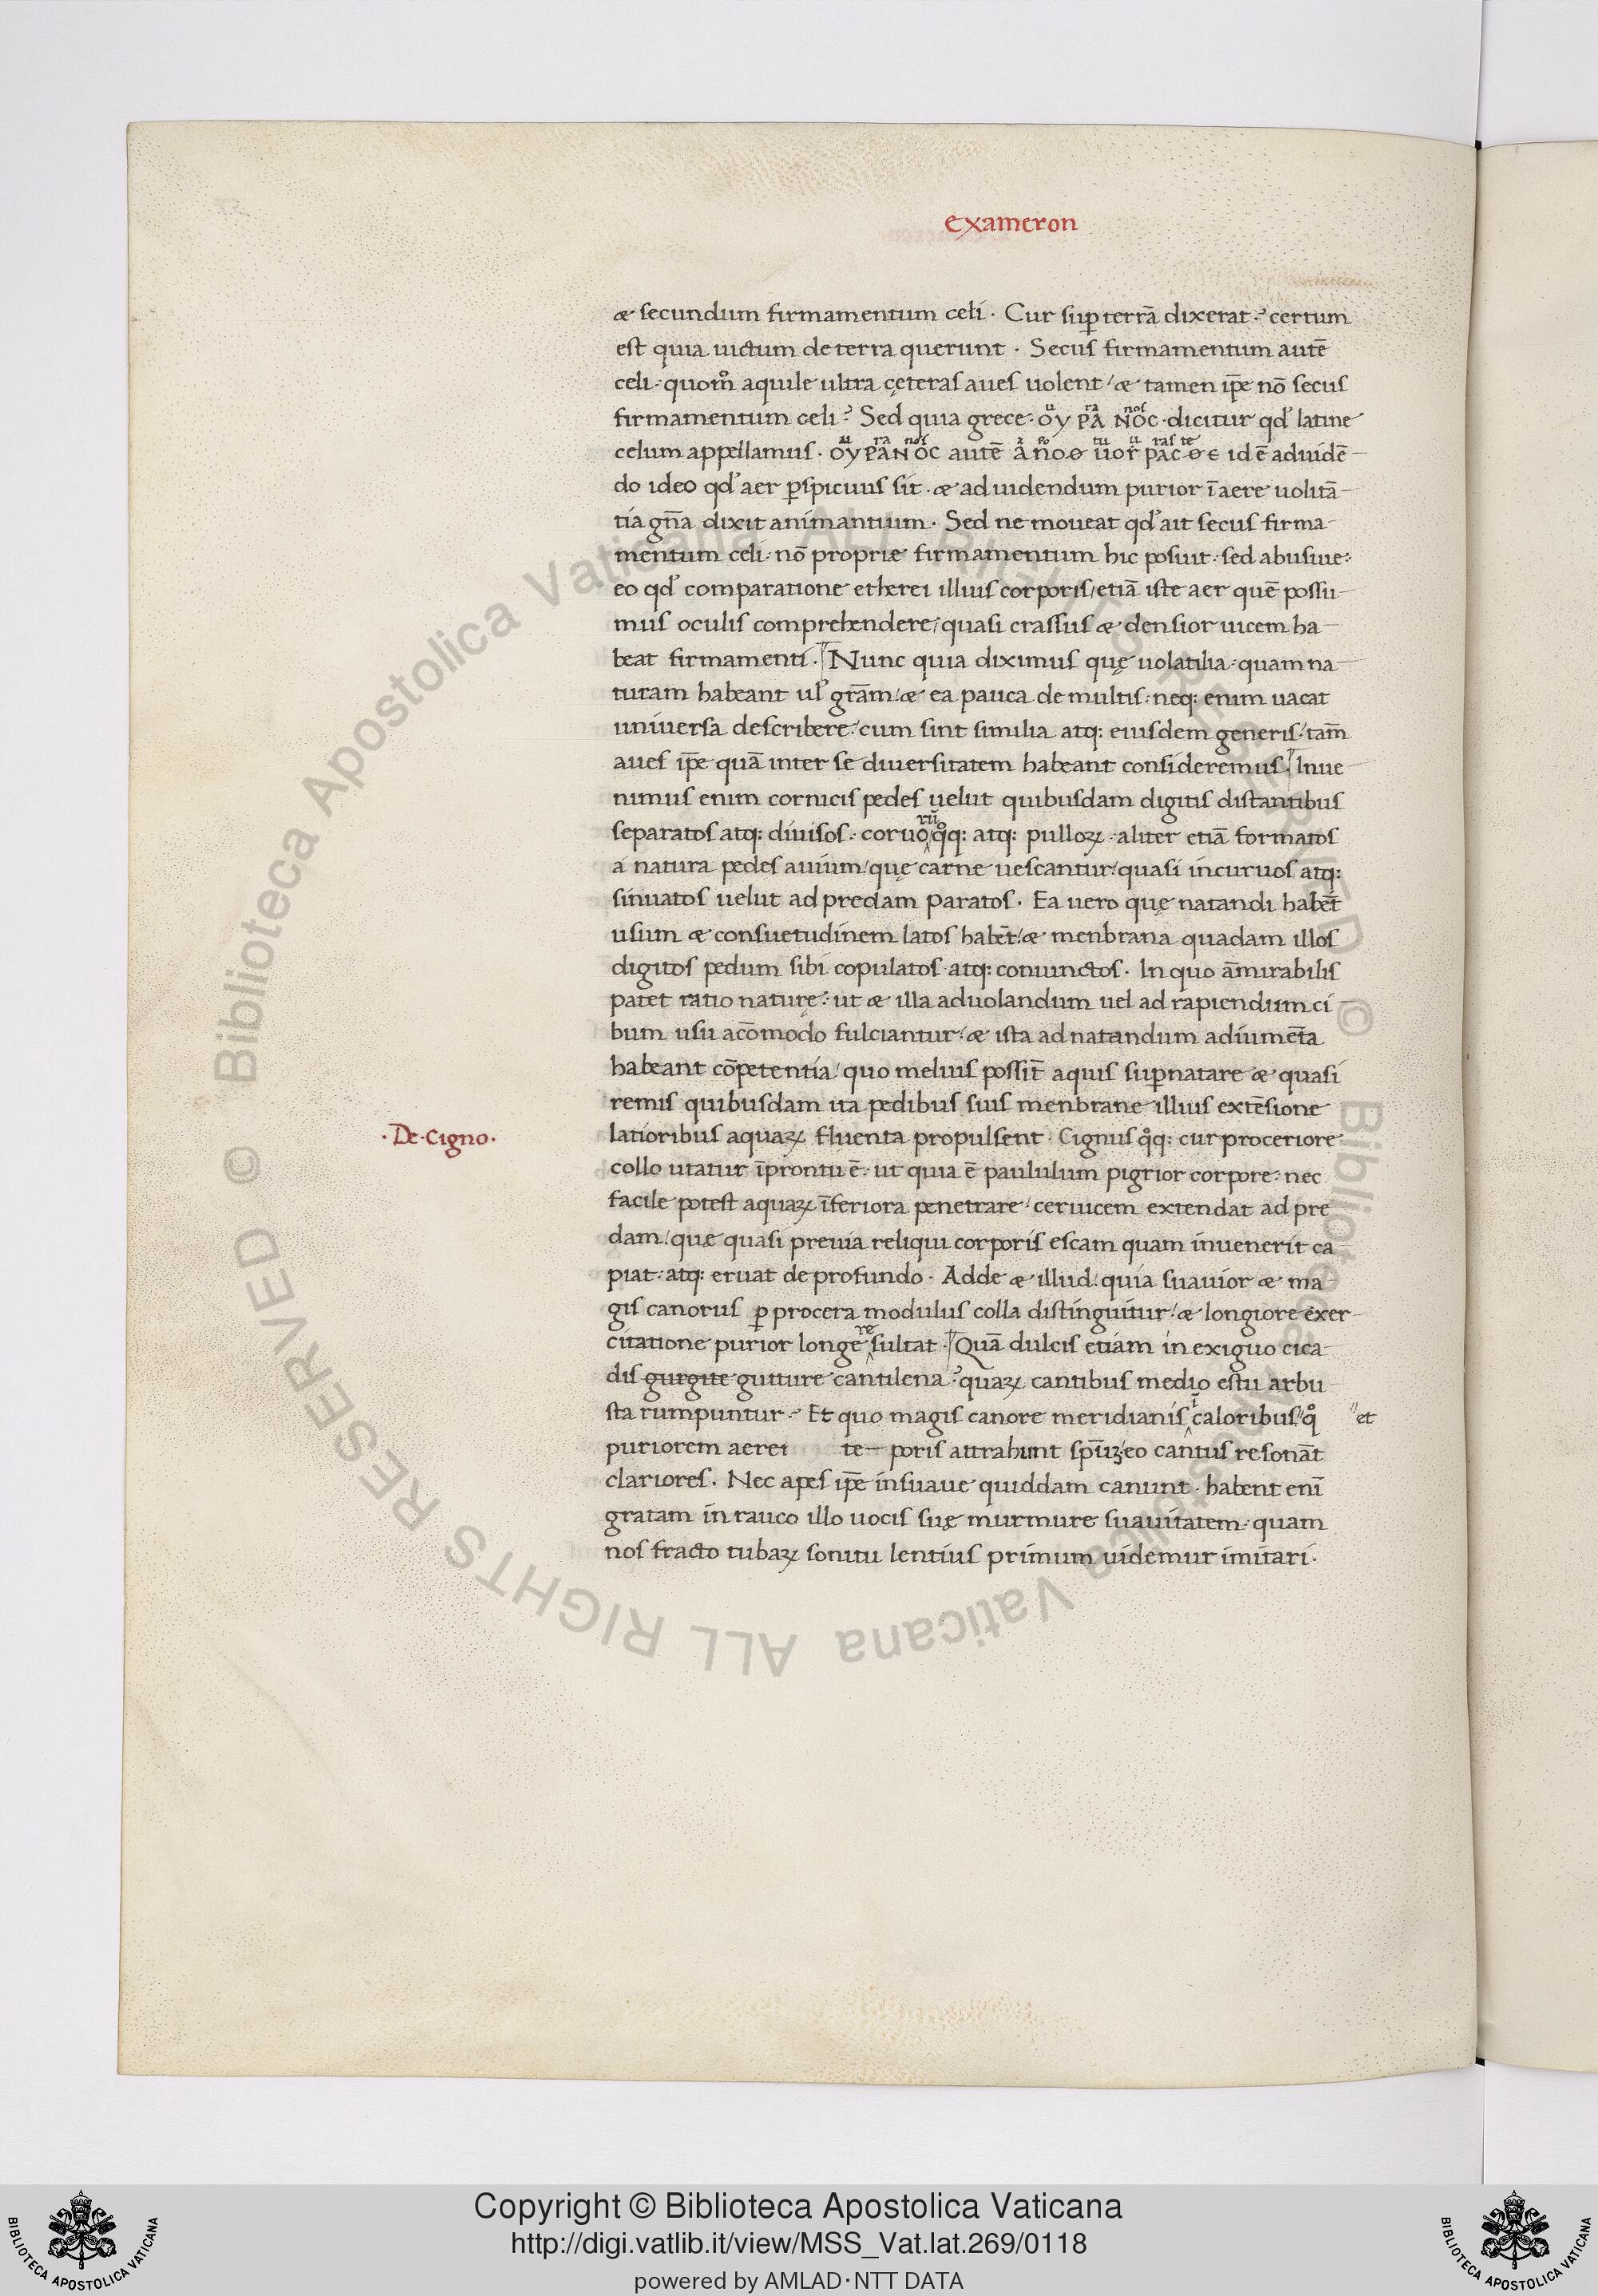 exameron
æ secundum firmamentum celi · Cur sup terrā dixerat ·ˀ certum
est quia uictum de terra querunt · Secus firmamentum autē
celi · quom̊ aquile ultra cęteras aues uolent / æ tamen ip̄e nō secus
firmamentum celi ˀ Sed quia grece · oy pa noc · dicitur qd' latine
celum appellamus · oy pa noc autē id ē ad uidē-
do ideo qd' aer ꝑspicuus sit · æ ad uidendum purior ī aere uolitā-
tia gn̄a dixit animantium · Sed ne moueat qd' ait secus firma-
mentum celi · nō proprie firmamentum hic posuit · sed abusiue :
eo qd' comparatione etherei illius corporis / etiā iste aer quē possu-
mus oculis comprehendere / quasi crassus æ densior uicem ha-
beat firmamenti · Nunc quia diximus quę uolatilia · quam na-
turam habeant ul' grām / æ ea pauca de multis · neq: enim uacat
uniuersa describere / cum sint similia atq: eiusdem generis / tam̄
aues ip̄e quā inter se diuersitatem habeant consideremus · Inue-
nimus enim cornicis pedes uelut quibusdam digitis distantibus
separatos atq: diuisos · coruo rū q̊q: atq: pulloꝝ · aliter etiā formatos
a natura pedes auium / quę carne uescantur / quasi incuruos atq:
sinuatos uelut ad predam paratos · Ea uero quę natandi habēt
usum æ consuetudinem latos habēt / æ menbrana quadam illos
digitos pedum sibi copulatos atq: coniunctos · In quo āmirabilis
patet ratio naturę · ut æ illa ad uolandum uel ad rapiendum ci
bum usu acōmodo fulciantur / æ ista ad natandum adiumēta
habeant cōpetentia / quo melius possīt aquis supnatare æ quasi
remis quibusdam ita pedibus suis menbrane illius extēsione
latioribus aquaꝝ fluenta propulsent · Cignus q̊q: cur proceriore
·De·Cigno·
collo utatur īprontu ē · ut quia ē paululum pigrior corpore · nec
facile potest aquaꝝ īferiora penetrare / ceruicem extendat ad pre
dam / quę quasi preuia reliqui corporis escam quam inuenerit ca
piat · atq: eruat de profundo · Adde æ illud / quia suauior æ ma
gis canorus ꝑ procera modulus colla distinguitur / æ longiore exer-
citatione purior longe re sultat · Quā dulcis etiam in exiguo cica
dis gurgite gutture cantilena ˀ quaꝝ cantibus medio estu arbu
sta rumpuntur · Et quo magis canore meridianis caloribus // q̊ // et
puriorem aerei te- poris attrahunt sp̄uꝫ / eo cantus resonāt
clariores · Nec apes ip̄e insuaue quiddam canunt · habent enī
gratam in rauco illo uocis suę murmure suauitatem · quam
nos fracto tubaꝝ sonitu lentius primum uidemur imitari ·
© Biblioteca Apostolica Vaticana ALL RIGHTS RESERVED © Biblioteca Apostolica Vaticana ALL RIGHTS RESERVED
Copyright © Biblioteca Apostolica Vaticana
http://digi.vatlib.it/view/MSS_Vat.lat.269/0118
powered by AMLAD·NTT DATA
BIBLIOTECA APOSTOLICA VATICANA
BIBLIOTECA APOSTOLICA VATICANA